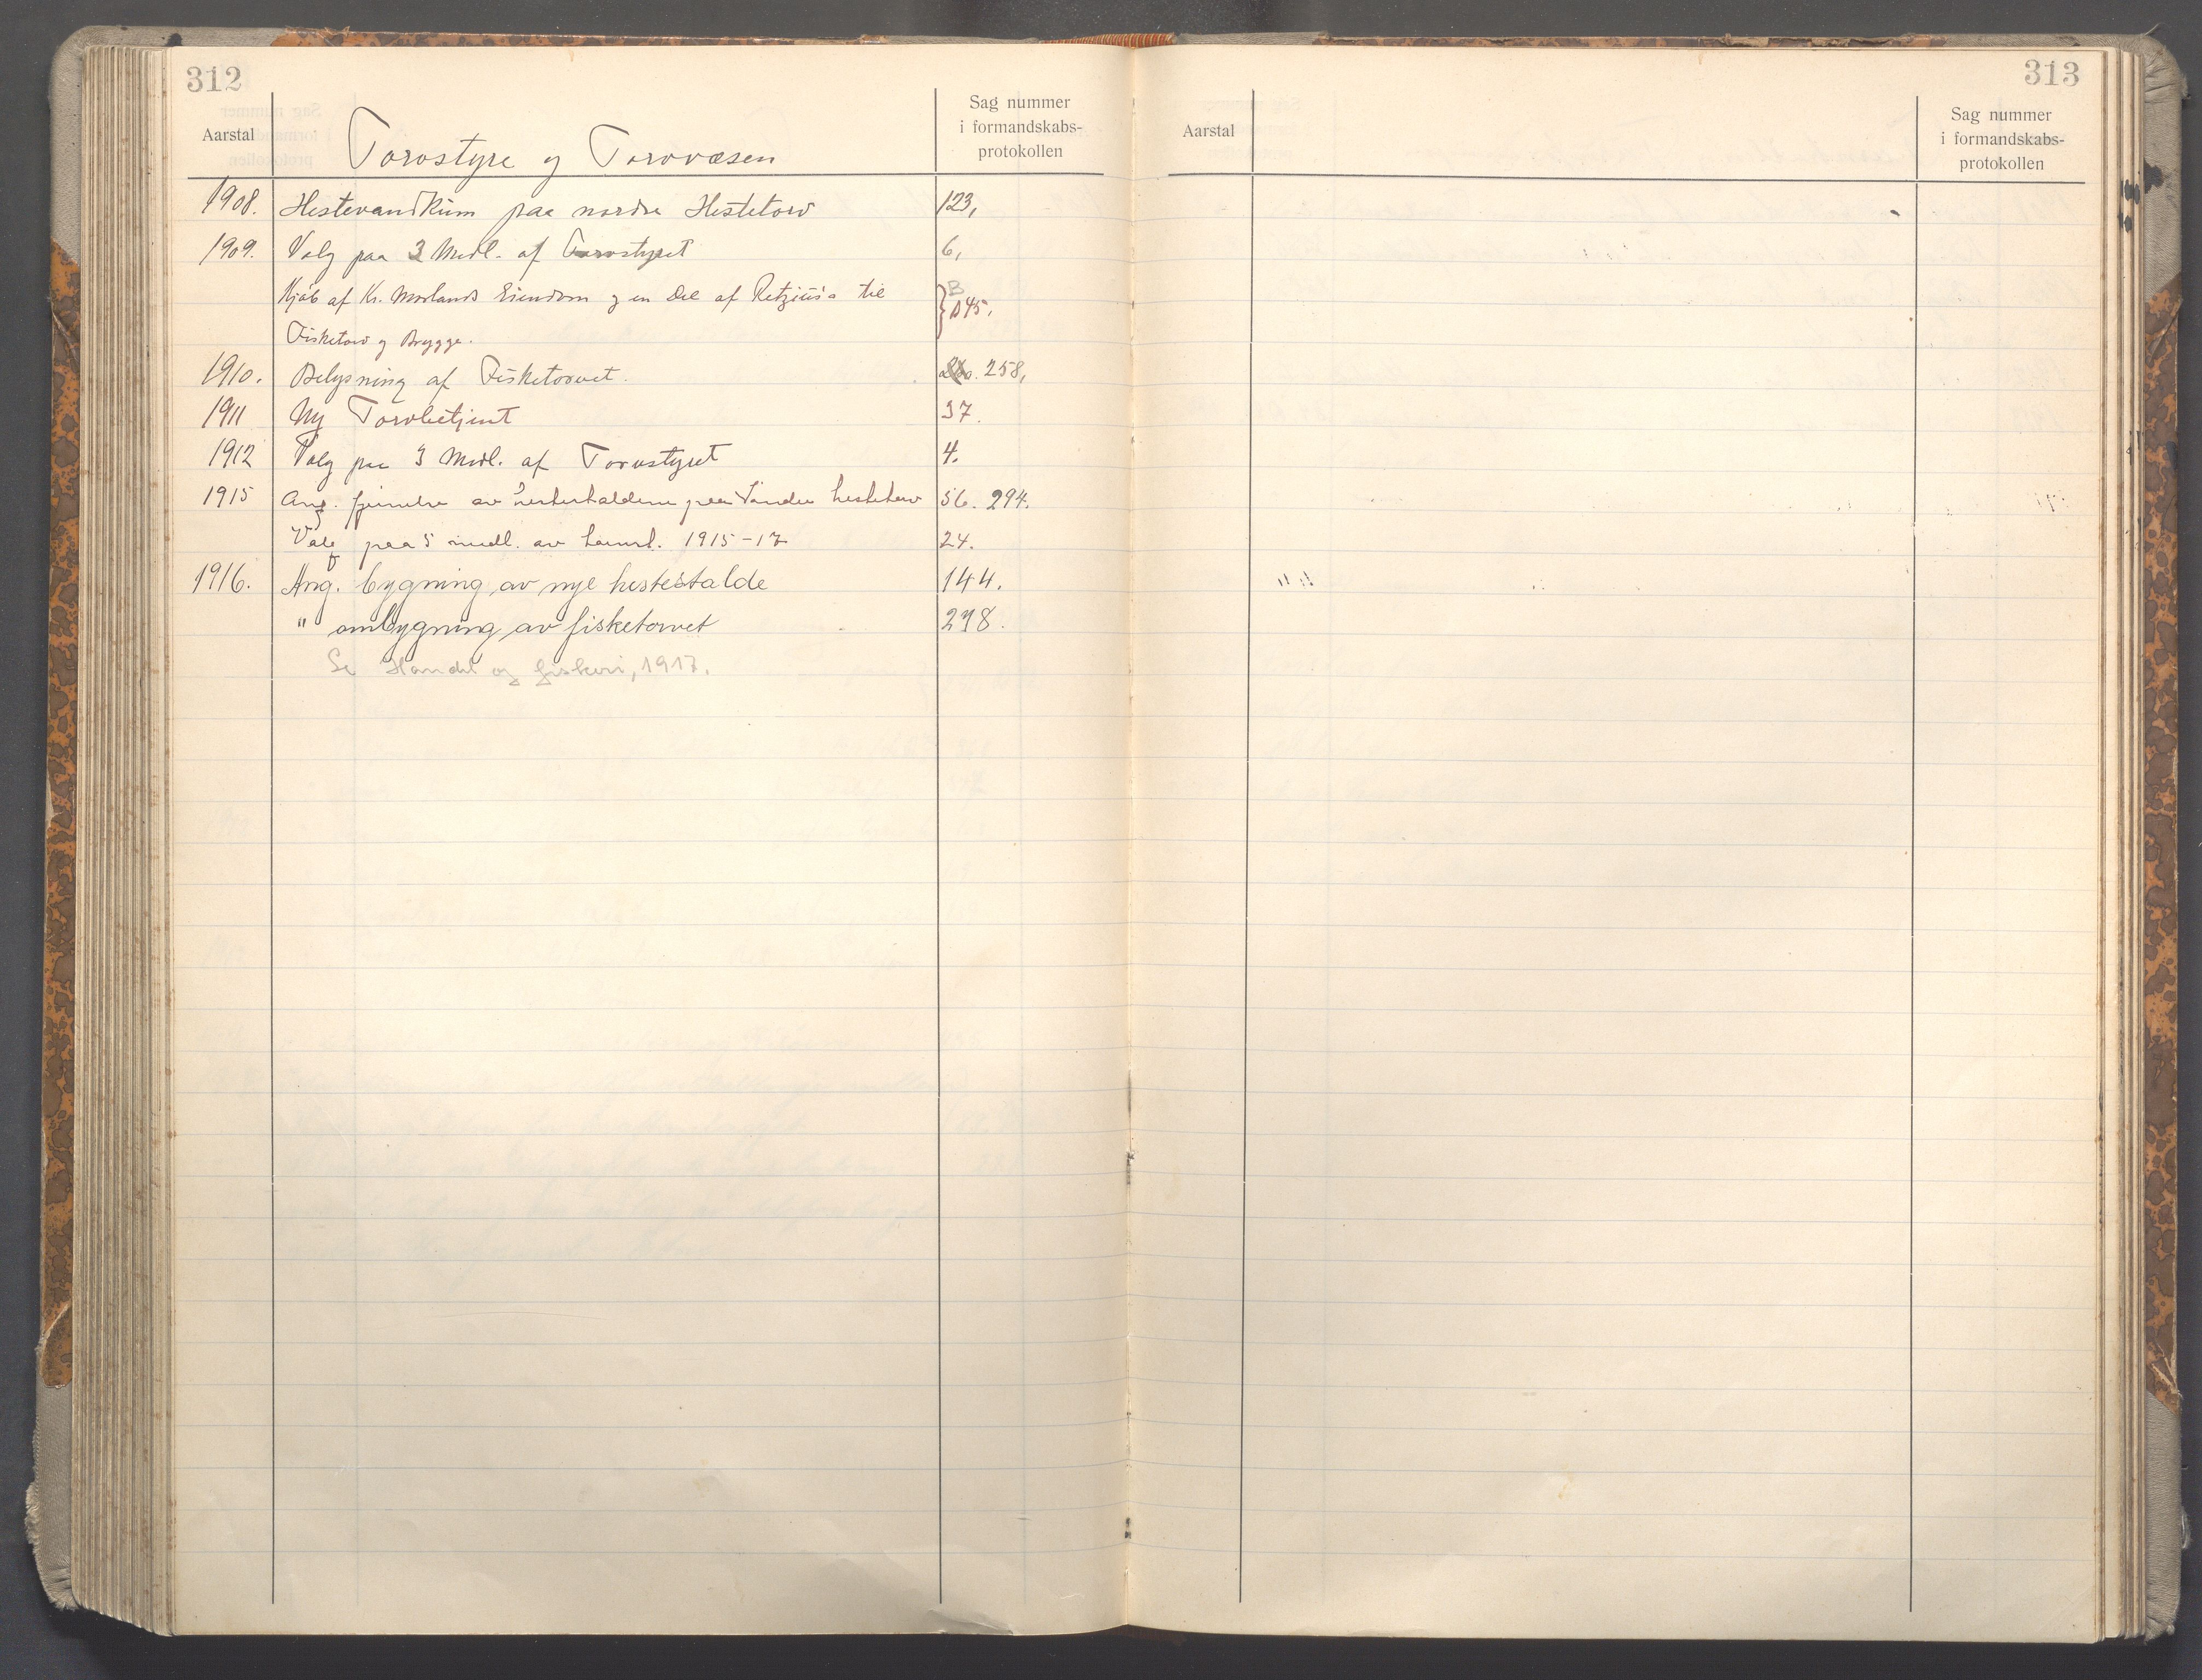 312
Aarstal
Torvstyre og Torvvæsen
Sag nummer
i formandskabs-
protokollen
1908. Hestevandkum paa nordre Hestetorv 123,
1909. Valg paa 3 Medl. af Torvstyret 6,
Kjøb af Kr. Morlands Eiendom og en Del af Retzius's til B 145.
Fisketorv og Brygge.
1910. Belysning af Fisketorvet. 258,
1911 Ny Torvbetjent 37.
1912 Valg paa 3 Medl. af Torvstyret 4.
1915 Ang. fjernelse av hestestaldene paa Søndre hestetorv 56. 294.
Valg paa 5 medl. av torvst. 1915-17 24.
1916. Ang. bygning av nye hestestalde 144.
" ombygning av fisketorvet 298.
Se Handel og fiskeri, 1917.
313
Aarstal
Sag nummer
i formandskabs-
protokollen